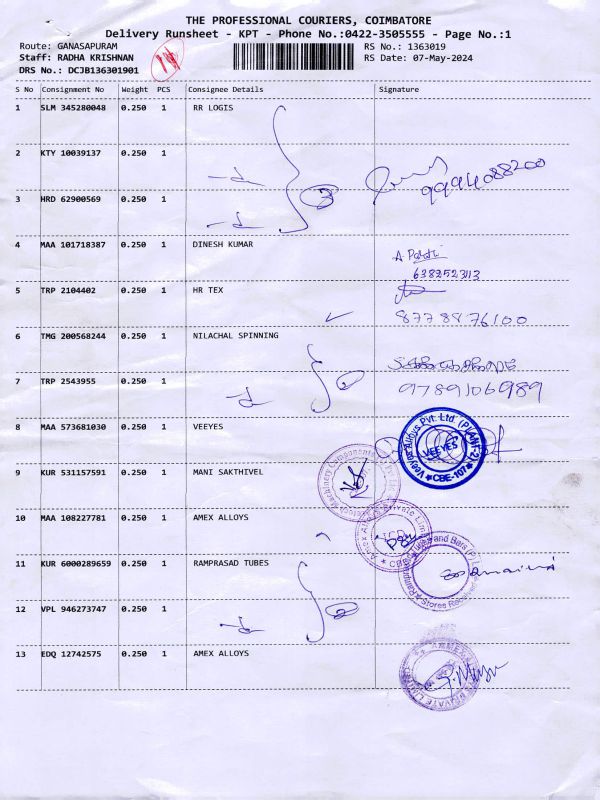 THE PROFESSIONAL COURIERS, COIMBATORE
Delivery Runsheet - KPT - Phone No.:0422-3505555 - Page No.:1
Route: GANASAPURAM
RS No.: 1363019
Staff: RADHA KRISHNAN
RS Date: 07-May-2024
DRS No.: DCJB136301901
S No Consignment No Weight PCS Consignee Details Signature
1 SLM 345280048 0.250 1 RR LOGIS
2 KTY 10039137 0.250 1
9994088200
3 HRD 62900569 0.250 1
4 MAA 101718387 0.250 1 DINESH KUMAR
5 TRP 2104402 0.250 1 HR TEX
8778876100
6 TMG 200568244 0.250 1 NILACHAL SPINNING
7 TRP 2543955 0.250 1
9789106989
8 MAA 573681030 0.250 1 VEEYES
VEEYES
CBE-107
9 KUR 531157591 0.250 1 MANI SAKTHIVEL
10 MAA 108227781 0.250 1 AMEX ALLOYS
11 KUR 6000289659 0.250 1 RAMPRASAD TUBES
12 VPL 946273747 0.250 1
13 EDQ 12742575 0.250 1 AMEX ALLOYS